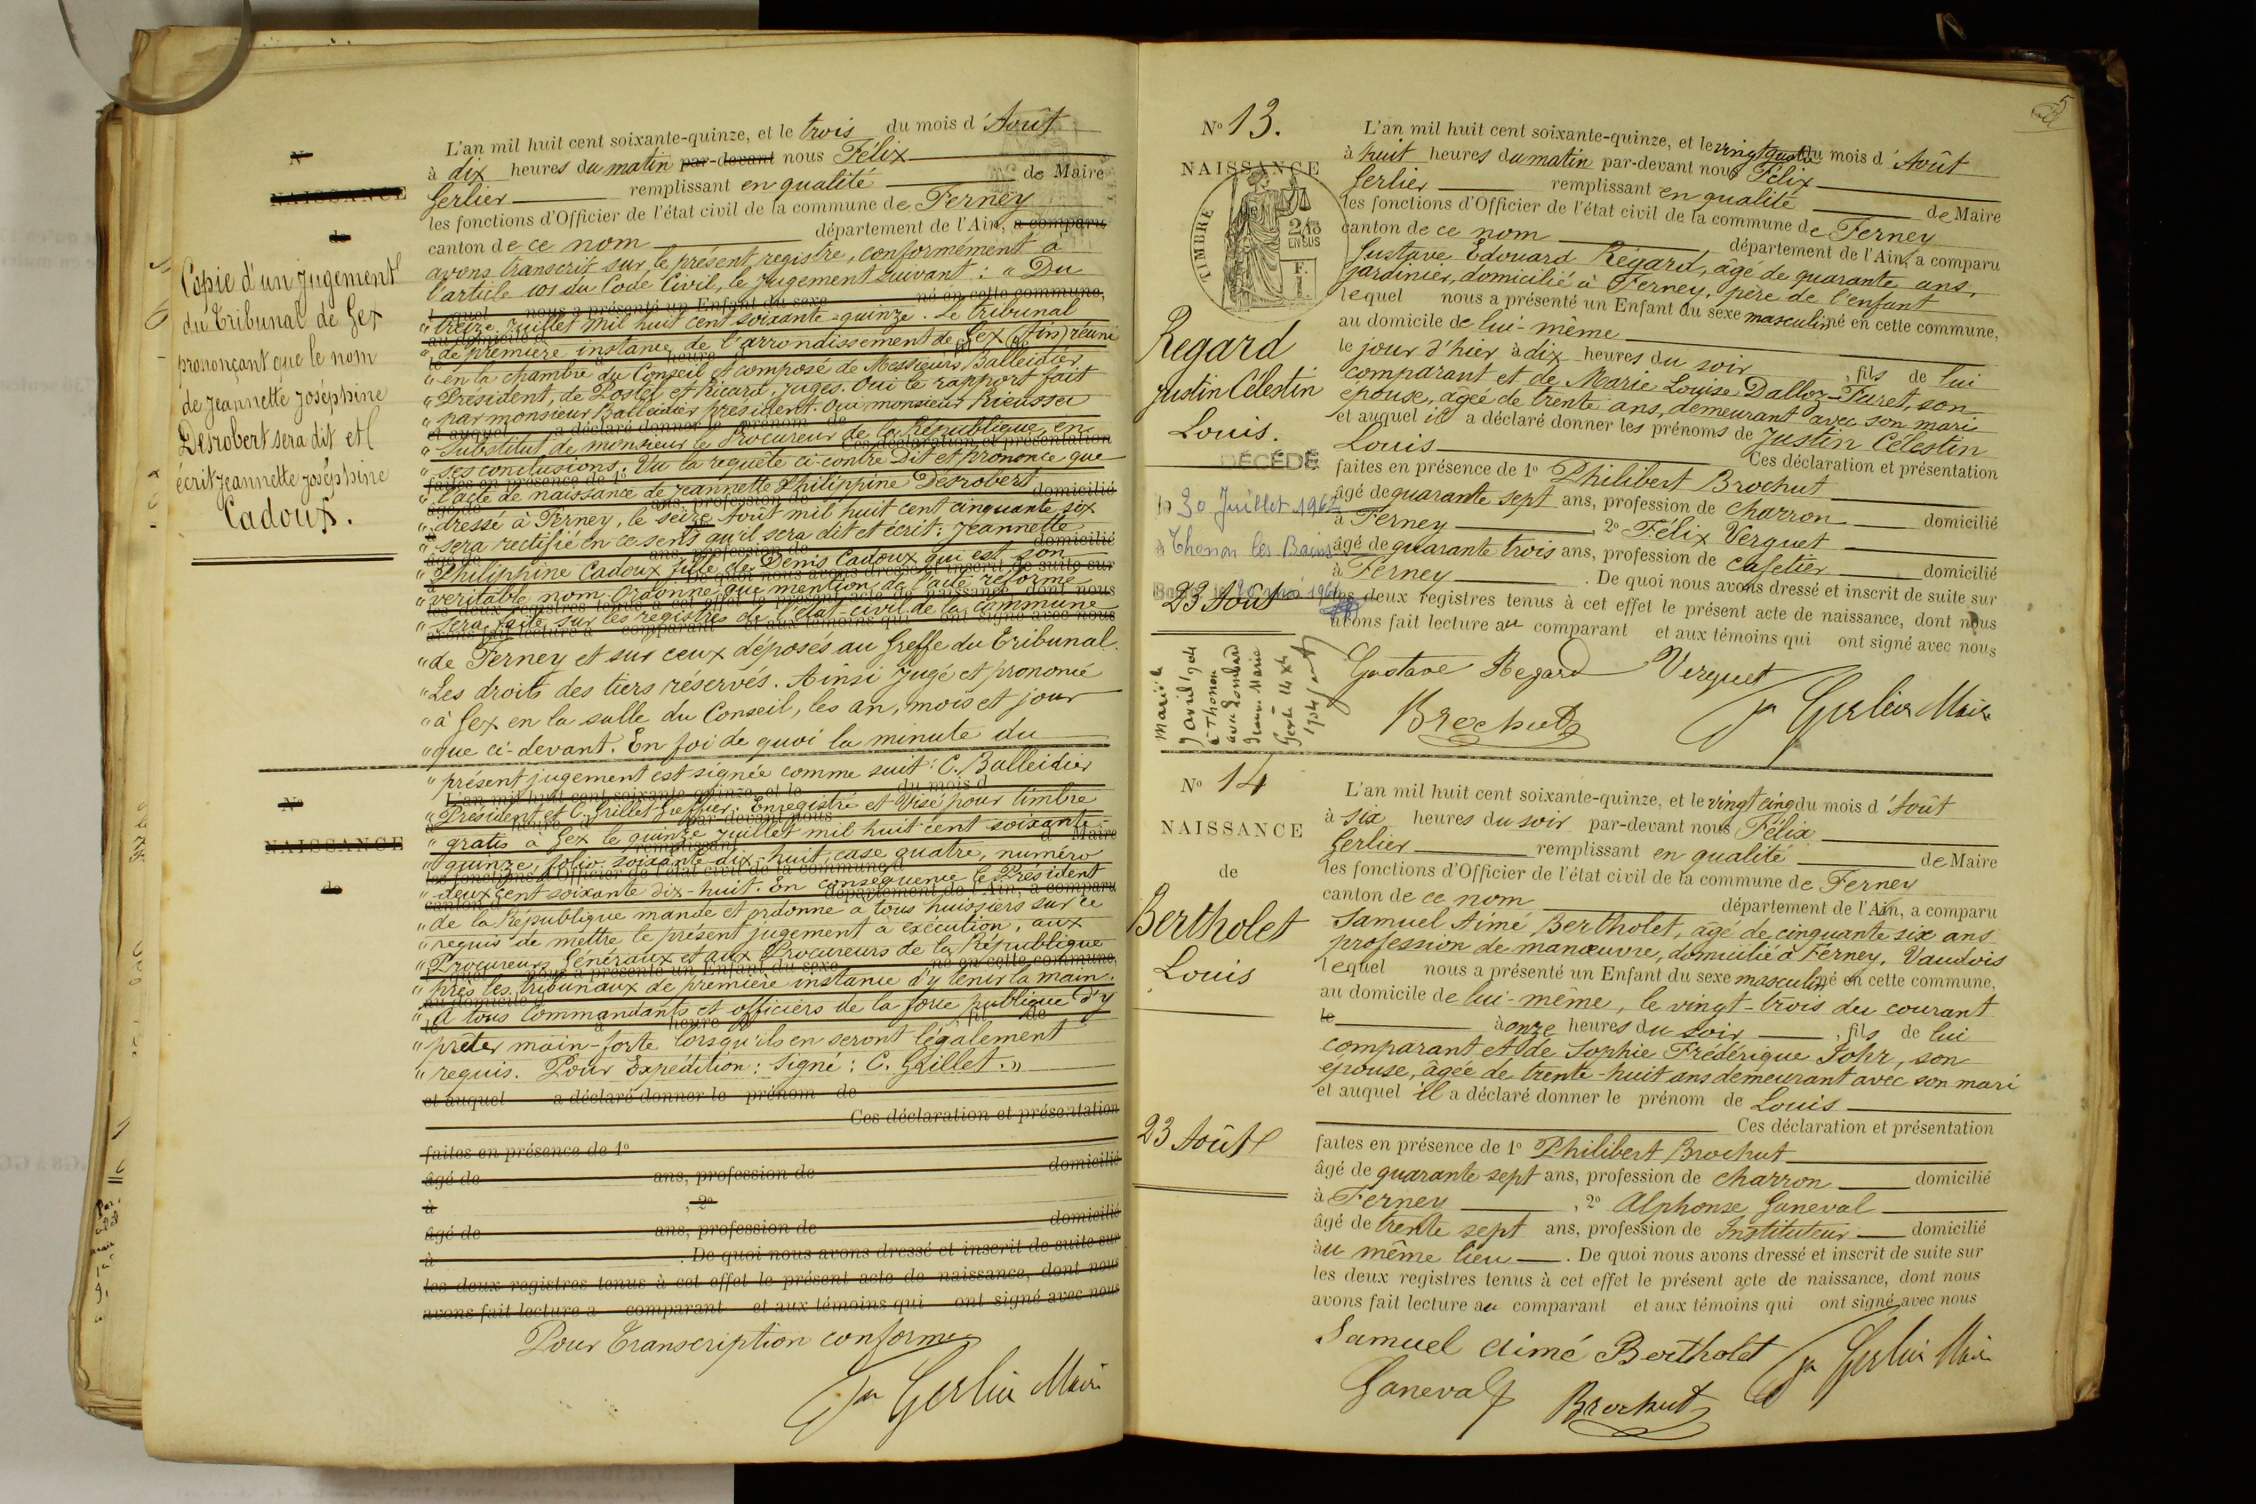 N°
NAISSANCE
de
Copie d'un jugement
du Tribunal de Gex
prononçant que le nom
de Jeannette Joséphine
Desrobert sera dit et
écrit Jeannette Joséphine
Cadoux.
L'an mil huit cent soixante-quinze, et le trois du mois d'Août
à dix heures du matin par-devant nous Félix
Gerlier remplissant en qualité de Maire
les fonctions d'Officier de l'état civil de la commune de Ferney
canton de ce nom département de l'Ain, a comparu
avons transcrit sur le présent registre, conformément à
l'article 101 du Code Civil, le jugement suivant : " Du
l quel nous a présenté un Enfant du sexe né en cette commune,
" treize Juillet mil huit cent soixante-quinze. Le tribunal
au domicile d
" de première instance de l'arrondissement de Gex (Ain) réuni
le à heure d fil de
" en la chambre du Conseil et composé de Messieurs Balleidier
" Président, de Postel et Ricard, juges. Oui le rapport fait
" par monsieur Balleidier président. Oui monsieur Rieussec
et auquel a déclaré donner le prénom de
" Substitut de monsieur le Procureur de la République en
Ces déclaration et présentation
" ses conclusions. Vu la requête ci-contre Dit et prononce que
faites en présence de 1°
" l'acte de naissance de Jeannette Philippine Desrobert
âgé de ans, profession de domicilié
" dressé à Ferney, le seize Août mil huit cent cinquante six
" sera rectifié en ce sens qu'il sera dit et écrit : Jeannette
âgé de ans, profession de domicilié
" Philiphine Cadoux fille de Denis Cadoux qui est son
à De quoi nous avons dressé et inscrit de suite sur
" véritable nom. Ordonne que mention de l'acte réformé
les deux registres tenus à cet effet le présent acte de naissance, dont nous
" sera faite sur les registres de l'état-civil de la commune
avons fait lecture a comparant et aux témoins qui ont signé avec nous
" de Ferney et sur ceux déposés au Greffe du Tribunal.
" Les droits des tiers réservés. Ainsi jugé et prononcé
" à Gex en la salle du Conseil, les an, mois et jour
" que ci-devant. En foi de quoi la minute du
N°
NAISSANCE
de
" présent jugement est signée comme suit : C. Balleidier
L'an mil huit cent soixante-quinze, et le du mois d
" Président et C. Grillet Greffier. Enregistré et Visé pour timbre
à heure d par-devant nous
" gratis à Gex le quinze juillet mil huit cent soixante-
remplissant d Maire
" quinze, folio soixante-dix-huit, case quatre, numéro
les fonctions d'Officier de l'état civil de la commune d
" deux cent soixante dix-huit. En conséquence le Président
canton d département de l'Ain, a comparu
" de la République mande et ordonne à tous huissiers sur ce
" requis de mettre le présent jugement à exécution, aux
" Procureurs Généraux et aux Procureurs de la République
l quel nous a présenté un Enfant du sexe né en cette commune,
" près les tribunaux de première instance d'y tenir la main.
au domicile d
" A tous Commandants et officiers de la force publique d'y
le à heure d fil de
" prêter main-forte lorsqu'ils en seront légalement
" requis. Pour Expédition : Signé : C. Grillet. "
et auquel a déclaré donner le prénom de
Ces déclaration et présentation
faites en présence de 1°
âgé de ans, profession de domicilié
à , 2°
âgé de ans, profession de domicilié
à . De quoi nous avons dressé et inscrit de suite sur
les deux registres tenus à cet effet le présent acte de naissance, dont nous
avons fait lecture a comparant et aux témoins qui ont signé avec nous
Pour Transcription conforme
Gerlier Maire
5
N° 13.
NAISSANCE
TIMBRE
2/10
EN SUS
F.
Regard
Justin Célestin
Louis.
DÉCÉDÉ
le 30 Juillet 1962
à Thonon les Bains
23 Août
Marié le
9 avril 1904
à Thonon
avec Lombard
Jeanne Marie
L'an mil huit cent soixante-quinze, et le vingt quatre du mois d'Août
à huit heures du matin par-devant nous Félix
Gerlier remplissant en qualité de Maire
les fonctions d'Officier de l'état civil de la commune de Ferney
canton de ce nom département de l'Ain, a comparu
Gustave Edouard Regard, âgé de quarante ans,
jardinier, domicilié à Ferney, père de l'enfant
lequel nous a présenté un Enfant du sexe masculin né en cette commune,
au domicile de lui-même
le jour d'hier à dix heures du soir, fils de lui
comparant et de Marie Louise Dalloz-Furet, son
épouse, âgée de trente ans, demeurant avec son mari
et auquel il a déclaré donner les prénoms de Justin Célestin
Louis Ces déclaration et présentation
faites en présence de 1° Philibert Brochut
âgé de quarante sept ans, profession de charron domicilié
à Ferney 2° Félix Verguet
âgé de quarante trois ans, profession de cafetier domicilié
à Ferney . De quoi nous avons dressé et inscrit de suite sur
les deux registres tenus à cet effet le présent acte de naissance, dont nous
avons fait lecture au comparant et aux témoins qui ont signé avec nous
Gustave Regard Verguet
Brochut Gerlier Maire
N° 14
NAISSANCE
de
Bertholet
Louis
23 Août
L'an mil huit cent soixante-quinze, et le vingt cinq du mois d'Août
à six heures du soir par-devant nous Félix
Gerlier remplissant en qualité de Maire
les fonctions d'Officier de l'état civil de la commune de Ferney
canton de ce nom département de l'Ain, a comparu
Samuel Aimé Bertholet, âgé de cinquante six ans
profession de manœuvre, domicilié à Ferney, Vaudois
lequel nous a présenté un Enfant du sexe masculin né en cette commune,
au domicile de lui-même, le vingt-trois du courant
le à onze heures du soir, fils de lui
comparant et de Sophie Frédérique Johr, son
épouse, âgée de trente-huit ans demeurant avec son mari
et auquel il a déclaré donner le prénom de Louis
Ces déclaration et présentation
faites en présence de 1° Philibert Brochut
âgé de quarante sept ans, profession de charron domicilié
à Ferney , 2° Alphonse Ganeval
âgé de trente sept ans, profession de Instituteur domicilié
au même lieu . De quoi nous avons dressé et inscrit de suite sur
les deux registres tenus à cet effet le présent acte de naissance, dont nous
avons fait lecture au comparant et aux témoins qui ont signé avec nous
Samuel aimé Bertholet Gerlier Maire
Ganeval Brochut